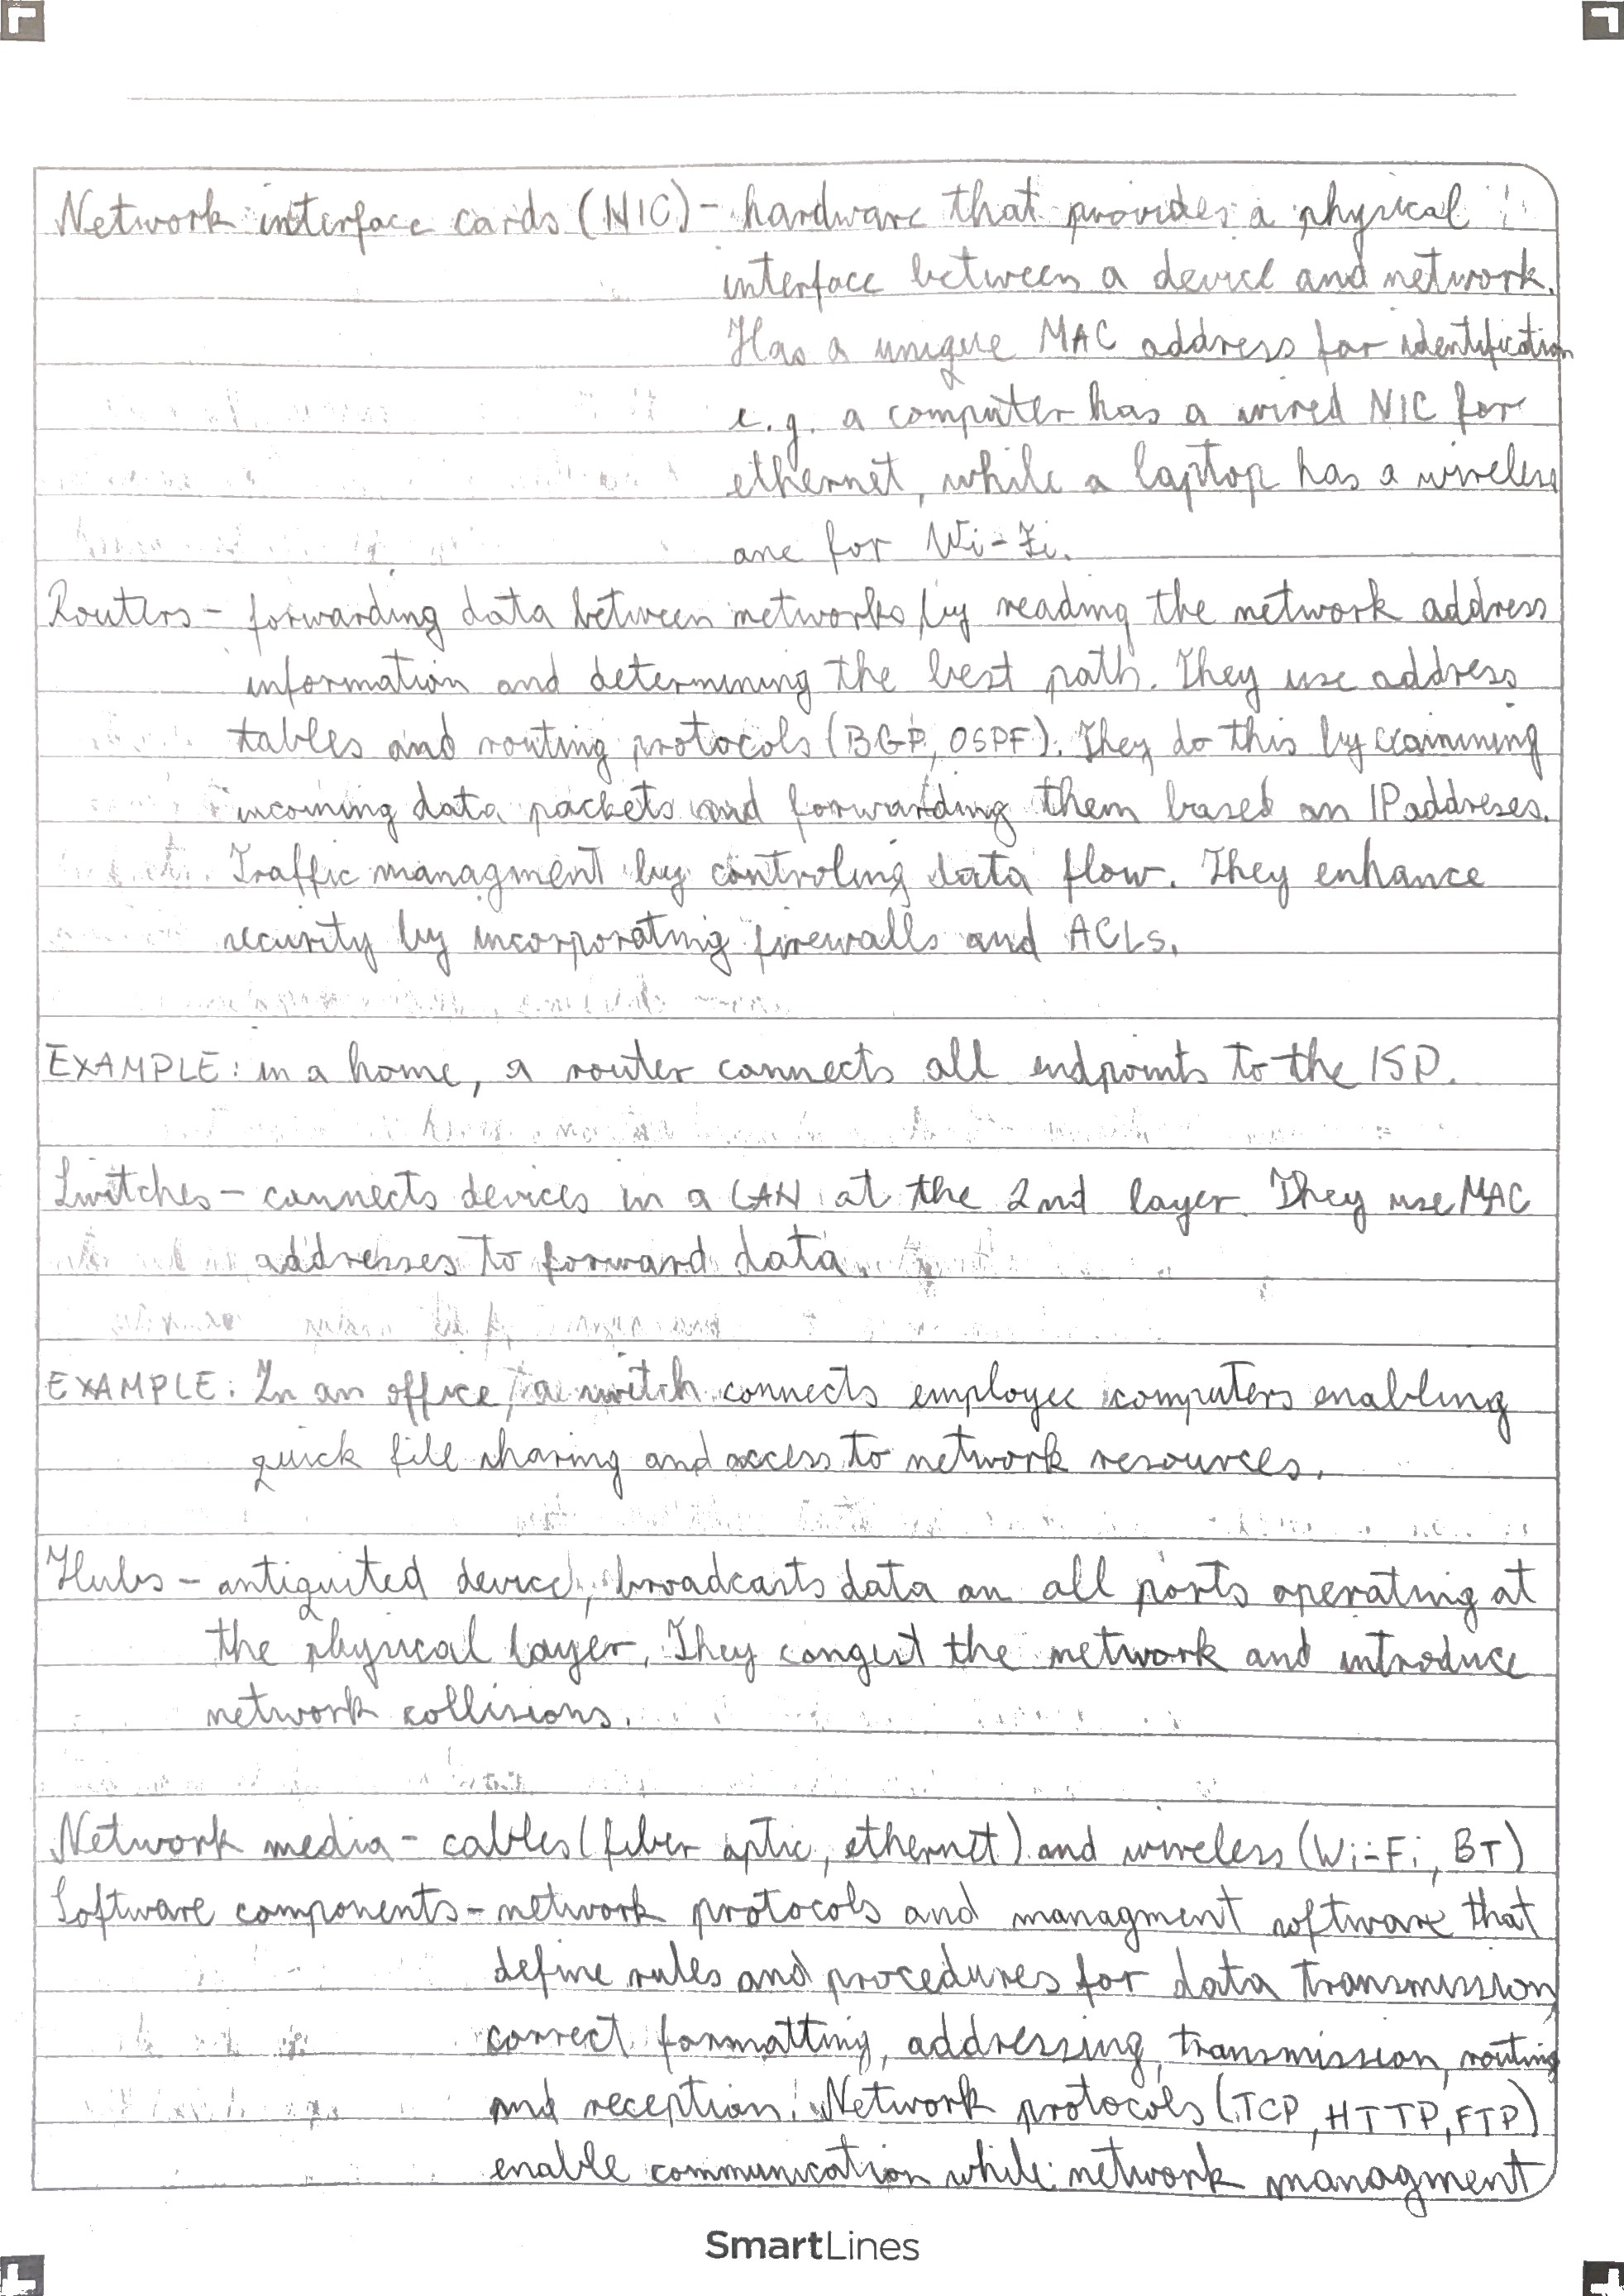 Network interface cards (NIC) - hardware that provides a physical
interface between a device and network.
Has a unique MAC address for identification
e.g. a computer has a wired NIC for
ethernet, while a laptop has a wireless
one for Wi-Fi.
Routers - forwarding data between networks by reading the network address
information and determining the best path. They use address
tables and routing protocols (BGP, OSPF). They do this by examining
incoming data packets and forwarding them based on IP addreses.
Traffic managment by controling data flow. They enhance
security by incorporating firewalls and ACLs.
EXAMPLE: in a home, a router connects all endpoints to the ISP.
Switches - connects devices in a LAN at the 2nd layer. They use MAC
addresses to forward data.
EXAMPLE: In an office, a switch connects employee computers enabling
quick file sharing and access to network resources.
Hubs - antiquited device, broadcasts data on all ports operating at
the physical layer. They congest the network and introduce
network collisions.
Network media - cables (fiber optic, ethernet) and wireless (Wi-Fi, BT)
Software components - network protocols and managment software that
define rules and procedures for data transmission,
correct formatting, addressing, transmission, routing
and reception. Network protocols (TCP, HTTP, FTP)
enable communication while network managment
SmartLines